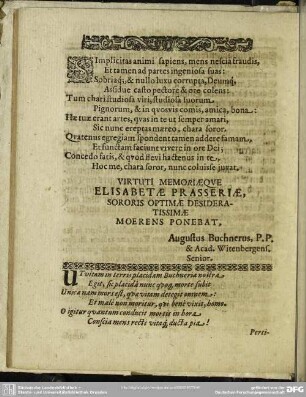 SImplicitas animi sapiens, mens nescia fraudis,
Et tamen ad partes ingeniosa suas:
Sobriaq;, & nullo luxu corrupta, Deumq;
Assidue casto pectore & ore colens:
Tum chari studiosa viri, studiosa suorum
Pignorum, & in quovis comis, amica, bona:
Hæ tuæ erant artes, quas in te ut semper amari,
Sic nunc ereptas mœreo, chara soror.
Qvatenus egregiam spondent tamen addere famam,
Et functam faciunt vivere in ore Dei;
Concedo fatis, & qvod flevi hactenus in te,
Hoc me, chara soror, nunc coluisse juvat.
VIRTUTI MEMORIÆQVE
ELISABETÆ PRASSERIÆ,
SORORIS OPTIMÆ DESIDERA-
TISSIMÆ
MOERENS PONEBAT,
Augustus Buchnerus, P.P.
& Acad. Witenbergens.
Senior.
UT vitam in terris placidam Buchneria nostra
Egit, sic placidâ nunc qvoq; morte subit
Unica nam mors est, quæ vitam detegit omnem:
Et malè non moritur, qvi benè vixit, homo.
O igitur quantum conducit mortis in hora
Conscia mens recti vitaq; ducta pia!
Perti-